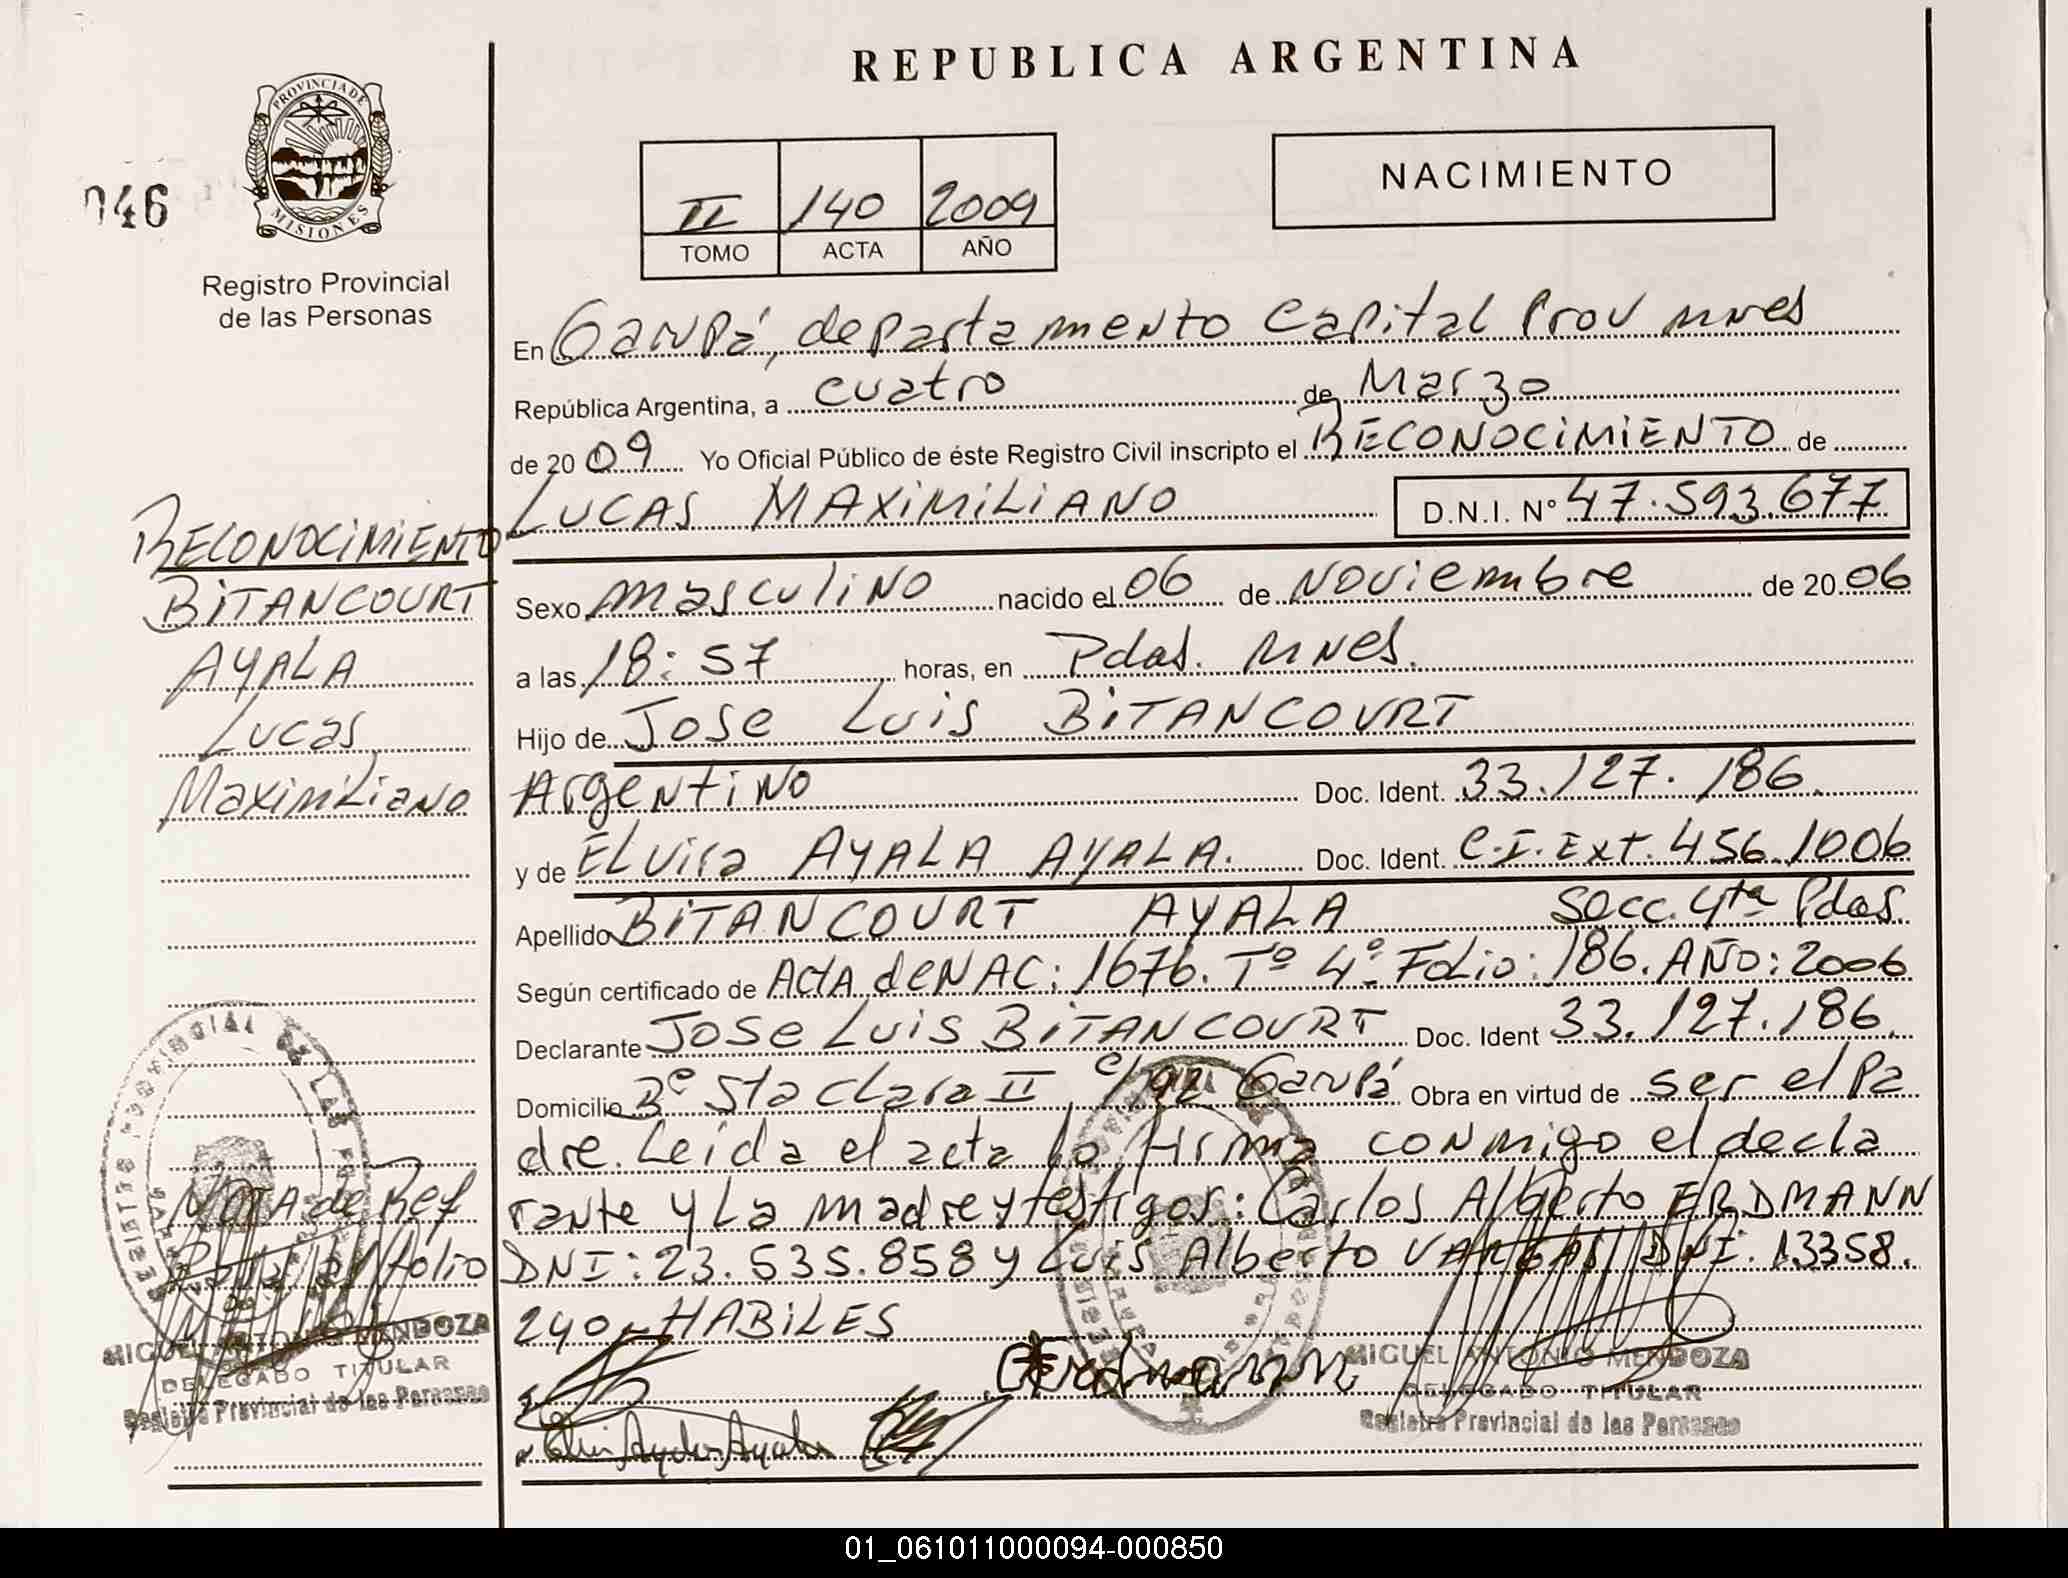 REPUBLICA ARGENTINA
PROVINCIA DE
MISIONES
046
Registro Provincial
de las Personas
II 140 2009
TOMO ACTA AÑO
NACIMIENTO
En Garupá, departamento Capital Prov mnes
República Argentina, a cuatro de Marzo
de 2009 Yo Oficial Público de éste Registro Civil inscripto el RECONOCIMIENTO de
LUCAS MAXIMILIANO D.N.I. Nº 47.593.677
RECONOCIMIENTO
BITANCOURT
AYALA
Lucas
Maximiliano
Sexo masculino nacido el 06 de noviembre de 2006
a las 18:57 horas, en Pdas. mnes.
Hijo de Jose Luis BITANCOURT
Argentino Doc. Ident. 33.127.186.
y de ELvira AYALA AYALA. Doc. Ident. C.I.Ext.456.1006
Apellido BITANCOURT AYALA Secc. 4ta Pdas.
Según certificado de Acta de NAC: 1676. Tº 4º Folio: 186. AÑO: 2006
Declarante Jose Luis BITANCOURT Doc. Ident 33.127.186.
Domicilio Bº Sta Clara II c/92 Garupá Obra en virtud de ser el Pa
dre. Leida el acta la firma conmigo el decla
rante y La madre y testigos: Carlos Alberto ERDMANN
DNI: 23.535.858 y Luis Alberto VARGAS DNI: 13358.
240 - HABILES
NOTA de Ref
folio
MIGUEL ANTONIO MENDOZA
DELEGADO TITULAR
Registro Provincial de las Personas
Erdmann
MIGUEL ANTONIO MENDOZA
DELEGADO TITULAR
Registro Provincial de las Personas
Ayala Ayala
01_061011000094-000850